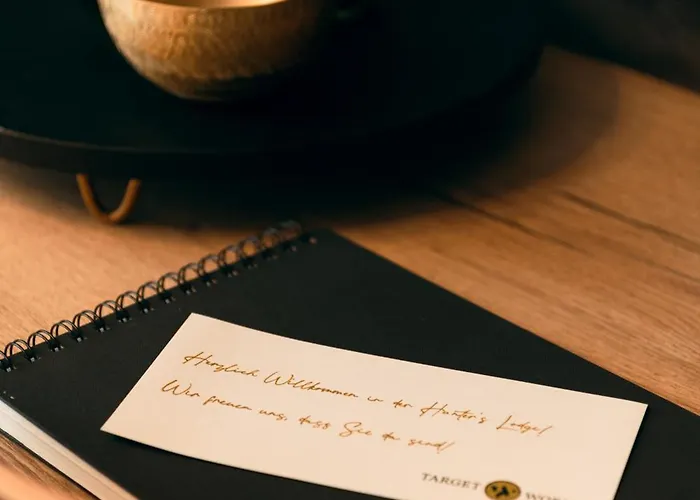 Herzlich Willkommen in der Hunter's Lodge!
Wir freuen uns, dass Sie da sind!
TARGET